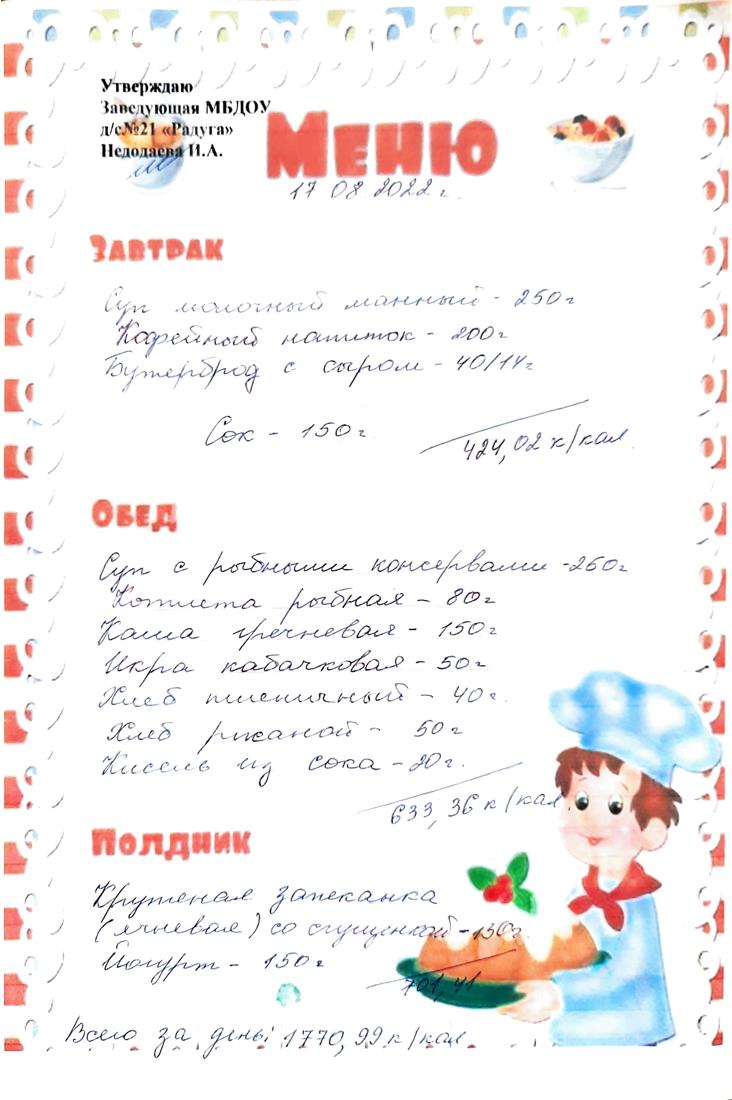 Утверждаю
Заведующая МБДОУ
д/с№21 «Радуга»
Недодаева И.А.
Меню
17 08 2022 г.
Завтрак
Суп молочный манный - 250г
Кофейный напиток - 200г
Бутерброд с сыром - 40/14г
Сок - 150г
424,02 к/кал.
Обед
Суп с рыбными консервами - 260г
Котлета рыбная - 80г
Каша гречневая - 150г
Икра кабачковая - 50г
Хлеб пшеничный - 40г.
Хлеб ржаной - 50г
Кисель из сока - 20г.
633,36 к/кал
Полдник
Крупеная запеканка
(ячневая) со сгущенкой - 130г.
Йогурт - 150г
701,41
Всего за день: 1770,99 к/кал.